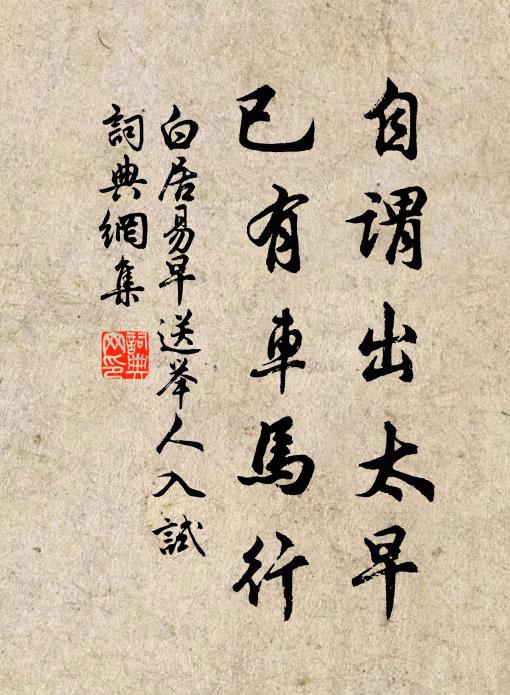 自謂出太早
已有車馬行
白居易早送举人入試
詞典網集
詞典网印